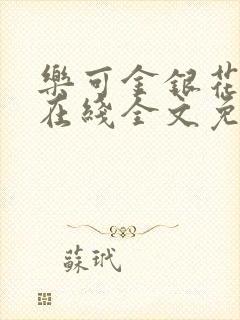 樂可金銀花
在綫全文免
蘇玳